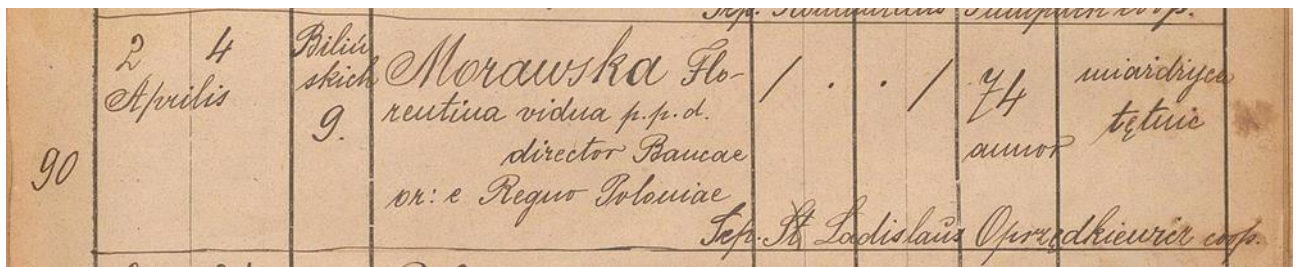 2 4 Bilińskich 9.
Aprilis
90
Morawska Flo-
rentina vidua p.p.d.
director Bancae
or: e Regno Poloniae
/ . . /
74
annor
miażdżyca
tętnic
Sep. St Ladislaus Oprzędkiewicz coop.